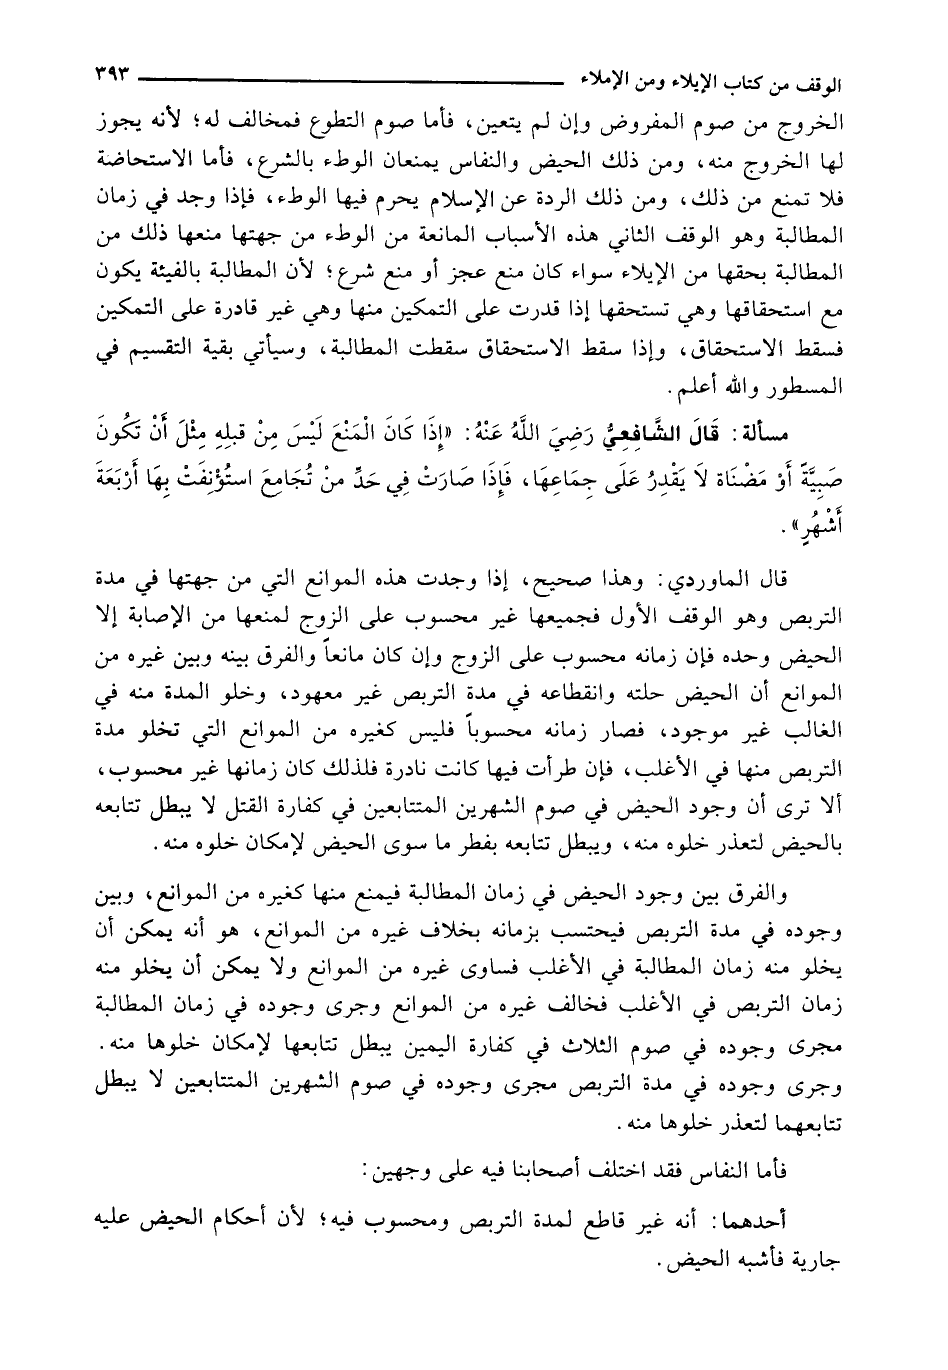 الوقف من كتاب الإيلاء ومن الإملاء ٣٩٣
الخروج من صوم المفروض وإن لم يتعين، فأما صوم التطوع فمخالف له؛ لأنه يجوز
لها الخروج منه، ومن ذلك الحيض والنفاس يمنعان الوطء بالشرع، فأما الاستحاضة
فلا تمنع من ذلك، ومن ذلك الردة عن الإسلام يحرم فيها الوطء، فإذا وجد في زمان
المطالبة وهو الوقف الثاني هذه الأسباب المانعة من الوطء من جهتها منعها ذلك من
المطالبة بحقها من الإيلاء سواء كان منع عجز أو منع شرع؛ لأن المطالبة بالفيئة يكون
مع استحقاقها وهي تستحقها إذا قدرت على التمكين منها وهي غير قادرة على التمكين
فسقط الاستحقاق، وإذا سقط الاستحقاق سقطت المطالبة، وسيأتي بقية التقسيم في
المسطور والله أعلم.
مسألة: قَالَ الشَّافِعِيُّ رَضِيَ اللَّهُ عَنْهُ: «إِذَا كَانَ الْمَنْعَ لَيْسَ مِنْ قبلِهِ مِثْلَ أَنْ تَكُونَ
صَبِيَّةً أَوْ مَضْنَاة لَا يَقْدِرُ عَلَى جِمَاعِهَا، فَإِذَا صَارَتْ فِي حَدِّ منْ تُجَامِعَ استُؤْنِفَتْ بِهَا أَرْبَعَةَ
أَشْهُرٍ».
قال الماوردي: وهذا صحيح، إذا وجدت هذه الموانع التي من جهتها في مدة
التربص وهو الوقف الأول فجميعها غير محسوب على الزوج لمنعها من الإصابة إلا
الحيض وحده فإن زمانه محسوب على الزوج وإن كان مانعاً والفرق بينه وبين غيره من
الموانع أن الحيض حلته وانقطاعه في مدة التربص غير معهود، وخلو المدة منه في
الغالب غير موجود، فصار زمانه محسوباً فليس كغيره من الموانع التي تخلو مدة
التربص منها في الأغلب، فإن طرأت فيها كانت نادرة فلذلك كان زمانها غير محسوب،
ألا ترى أن وجود الحيض في صوم الشهرين المتتابعين في كفارة القتل لا يبطل تتابعه
بالحيض لتعذر خلوه منه، ويبطل تتابعه بفطر ما سوى الحيض لإمكان خلوه منه.
والفرق بين وجود الحيض في زمان المطالبة فيمنع منها كغيره من الموانع، وبين
وجوده في مدة التربص فيحتسب بزمانه بخلاف غيره من الموانع، هو أنه يمكن أن
يخلو منه زمان المطالبة في الأغلب فساوى غيره من الموانع ولا يمكن أن يخلو منه
زمان التربص في الأغلب فخالف غيره من الموانع وجرى وجوده في زمان المطالبة
مجرى وجوده في صوم الثلاث في كفارة اليمين يبطل تتابعها لإمكان خلوها منه.
وجرى وجوده في مدة التربص مجرى وجوده في صوم الشهرين المتتابعين لا يبطل
تتابعهما لتعذر خلوها منه.
فأما النفاس فقد اختلف أصحابنا فيه على وجهين:
أحدهما: أنه غير قاطع لمدة التربص ومحسوب فيه؛ لأن أحكام الحيض عليه
جارية فأشبه الحيض.